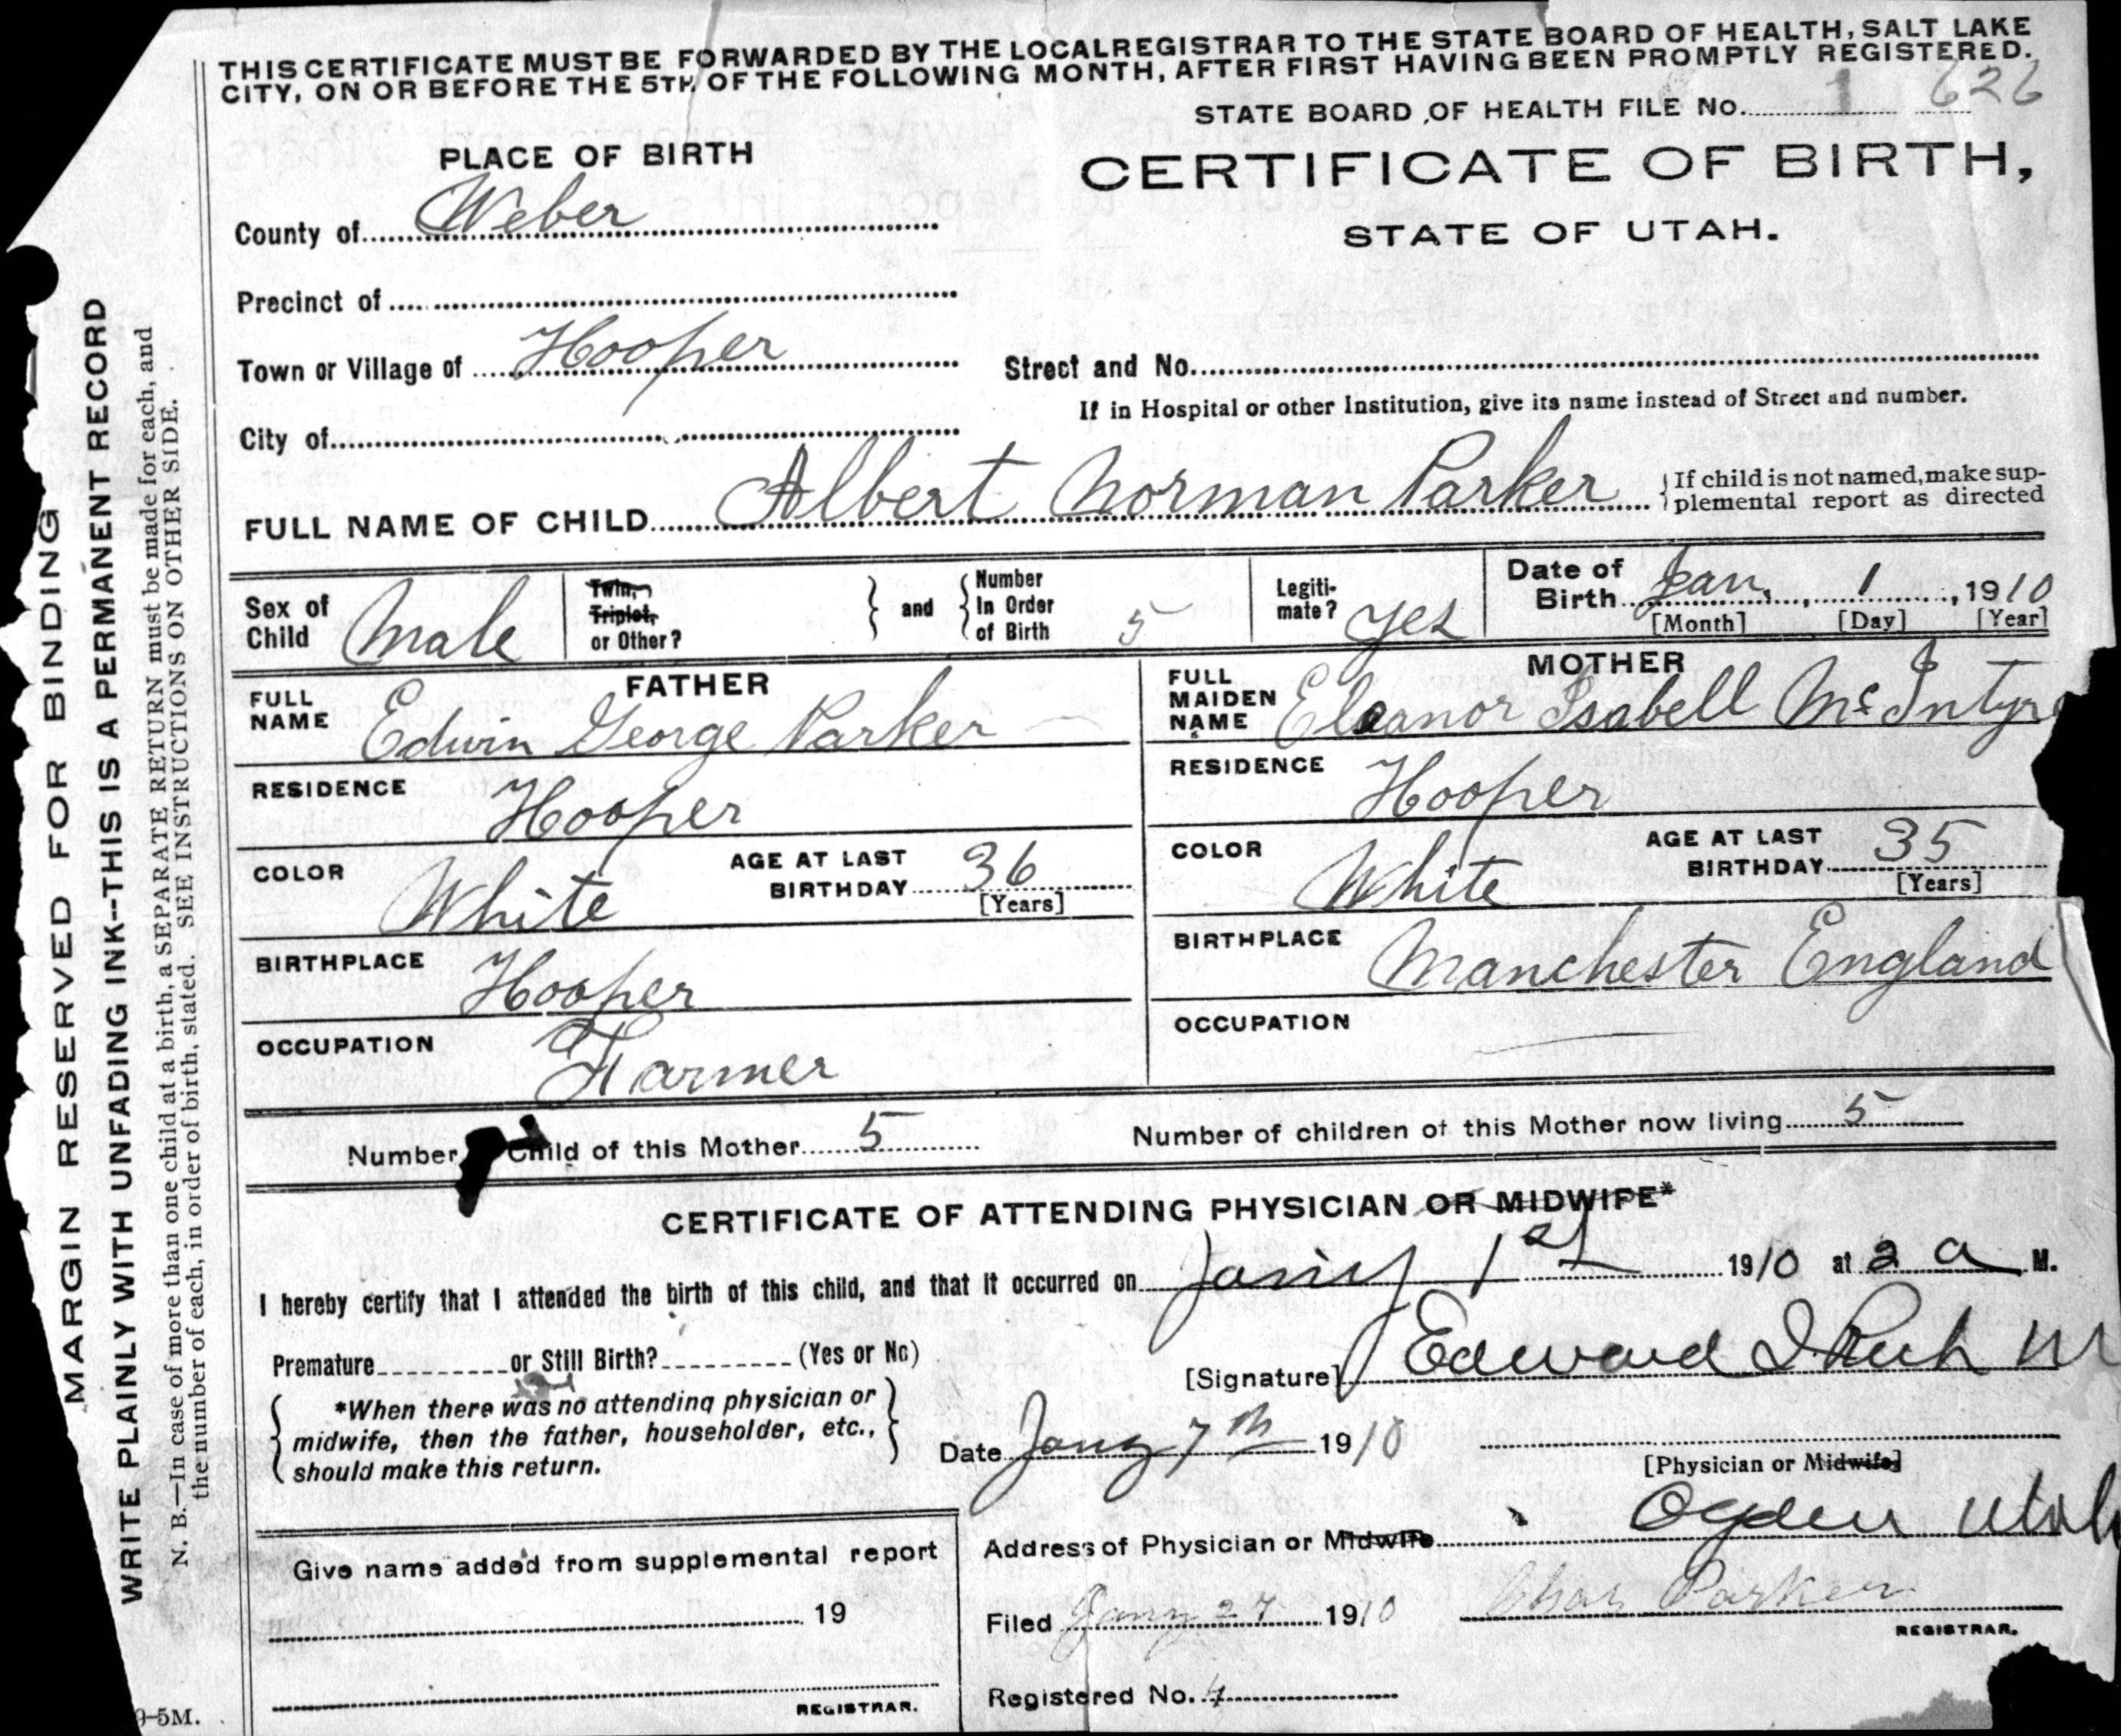 THIS CERTIFICATE MUST BE FORWARDED BY THE LOCAL REGISTRAR TO THE STATE BOARD OF HEALTH, SALT LAKE
CITY, ON OR BEFORE THE 5TH OF THE FOLLOWING MONTH, AFTER FIRST HAVING BEEN PROMPTLY REGISTERED.
STATE BOARD OF HEALTH FILE No. 1 626
PLACE OF BIRTH
CERTIFICATE OF BIRTH,
STATE OF UTAH.
County of Weber
Precinct of
Town or Village of Hooper
Street and No.
If in Hospital or other Institution, give its name instead of Street and number.
City of
FULL NAME OF CHILD Albert Norman Parker
If child is not named, make sup-
plemental report as directed
Sex of Child Male
Twin, Triplet, or Other?
and
Number In Order of Birth 5
Legiti-mate? yes
Date of Birth Jan. 1, 1910
[Month] [Day] [Year]
FATHER
FULL NAME Edwin George Parker
MOTHER
FULL MAIDEN NAME Eleanor Isabell McIntyre
RESIDENCE Hooper
RESIDENCE Hooper
COLOR White
AGE AT LAST BIRTHDAY 36
[Years]
COLOR White
AGE AT LAST BIRTHDAY 35
[Years]
BIRTHPLACE Hooper
BIRTHPLACE Manchester England
OCCUPATION Farmer
OCCUPATION
Number Child of this Mother 5
Number of children of this Mother now living 5
CERTIFICATE OF ATTENDING PHYSICIAN OR MIDWIFE*
I hereby certify that I attended the birth of this child, and that it occurred on Jany 1st 1910 at 2 a M.
Premature or Still Birth? (Yes or No)
[Signature] Edward I Rich M
*When there was no attending physician or
midwife, then the father, householder, etc.,
should make this return.
Date Jany 7th 1910
[Physician or Midwife]
Address of Physician or Midwife Ogden Utah
Give name added from supplemental report
19
REGISTRAR.
Filed Jany 27 1910
Chas Parker
REGISTRAR.
Registered No. 4
MARGIN RESERVED FOR BINDING
WRITE PLAINLY WITH UNFADING INK--THIS IS A PERMANENT RECORD
N. B.—In case of more than one child at a birth, a SEPARATE RETURN must be made for each, and
the number of each, in order of birth, stated. SEE INSTRUCTIONS ON OTHER SIDE.
9-5M.